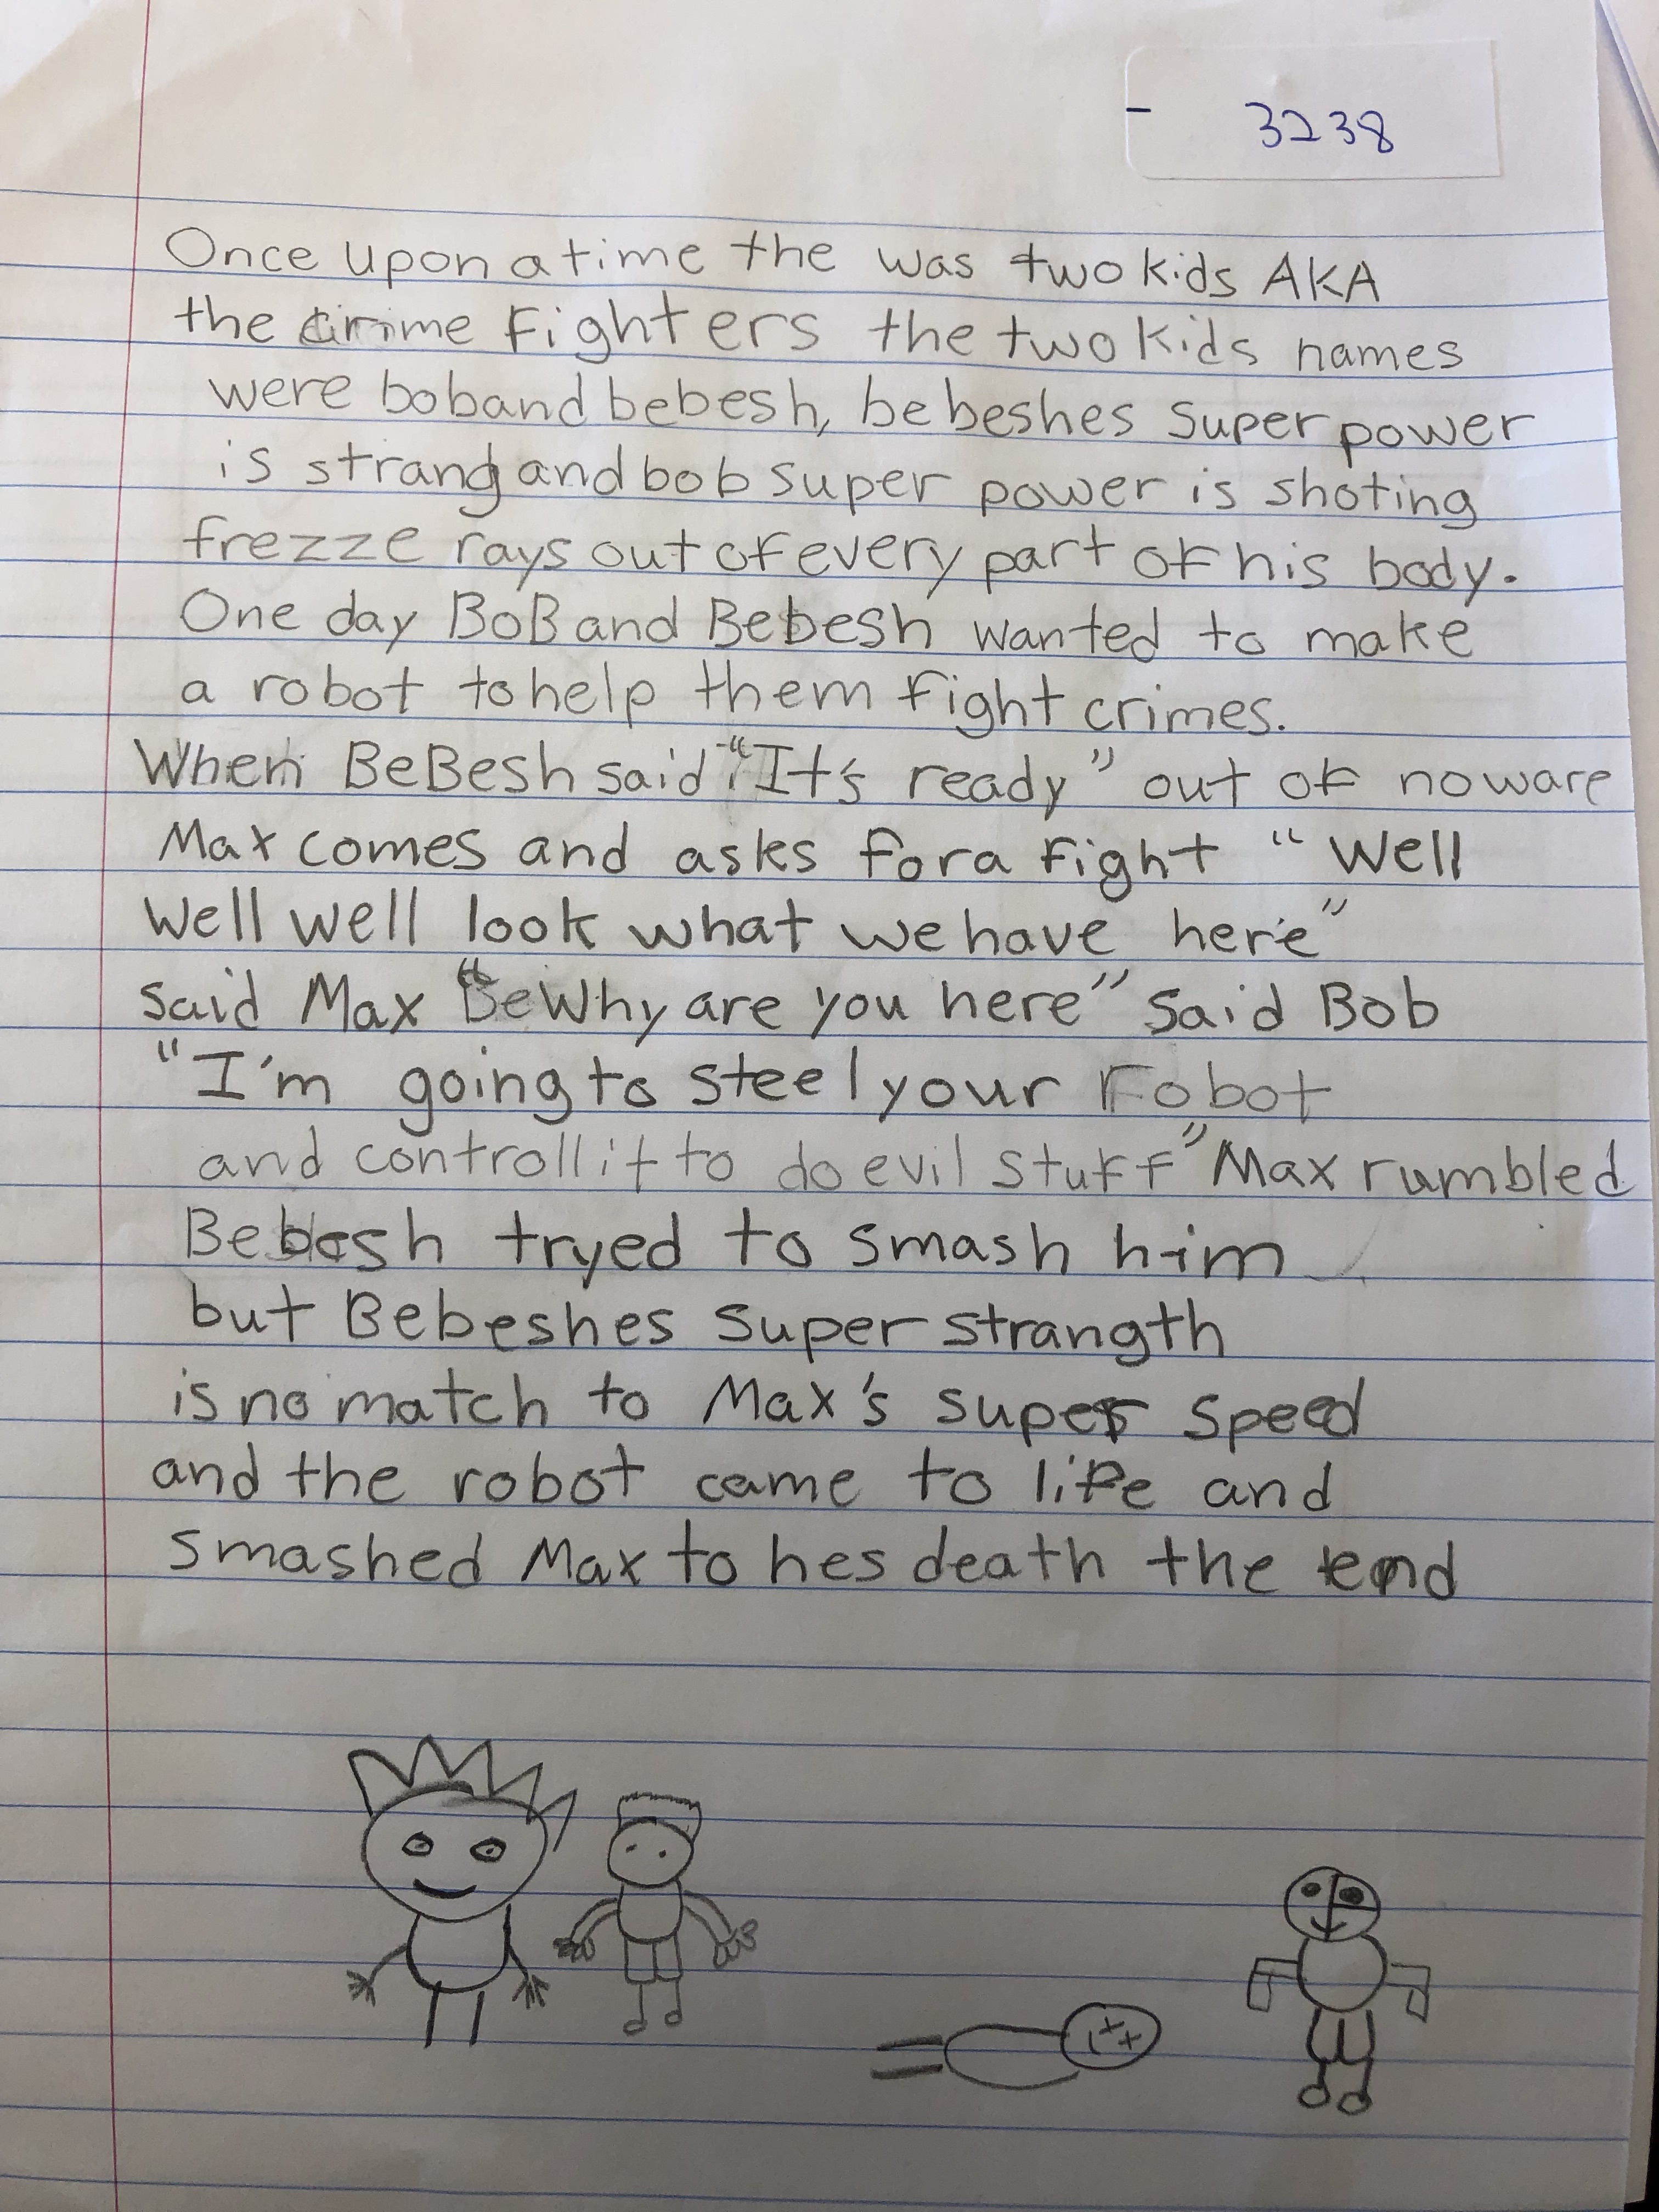 - 3238
Once upon a time the was two kids AKA
the crime Fighters the two kids names
were bob and bebesh, bebeshes super power
is strang and bob super power is shoting
frezze rays out of every part of his body.
One day BoB and Bebesh wanted to make
a robot to help them fight crimes.
When BeBesh said "It's ready" out of noware
Max comes and asks for a fight "Well
well well look what we have here"
said Max "Be Why are you here" said Bob
"I'm going to steel your robot
and controll it to do evil stuff" Max rumbled
Bebesh tryed to smash him
but Bebeshes super strangth
is no match to Max's super speed
and the robot came to life and
smashed Max to hes death the end